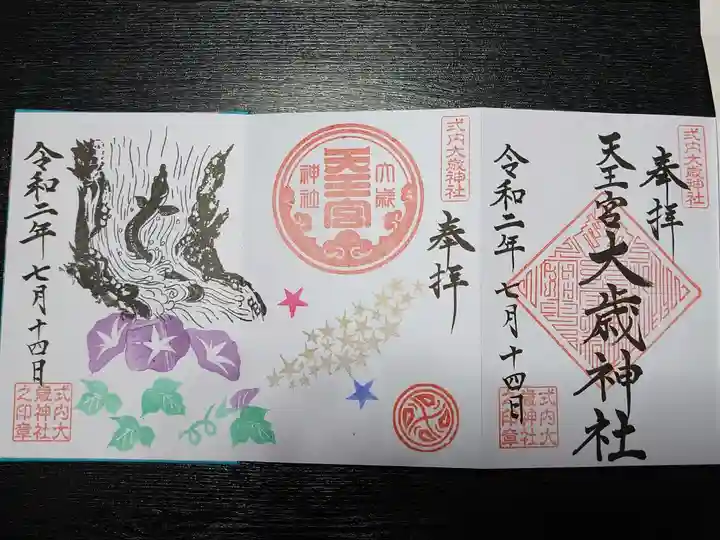 奉拝
式内大歳神社
天王宮大歳神社
令和二年七月十四日
式内大
歳神社
之印章
式内大歳神社
奉拝
大歳
天王宮
神社
令和二年七月十四日
式内大
歳神社
之印章